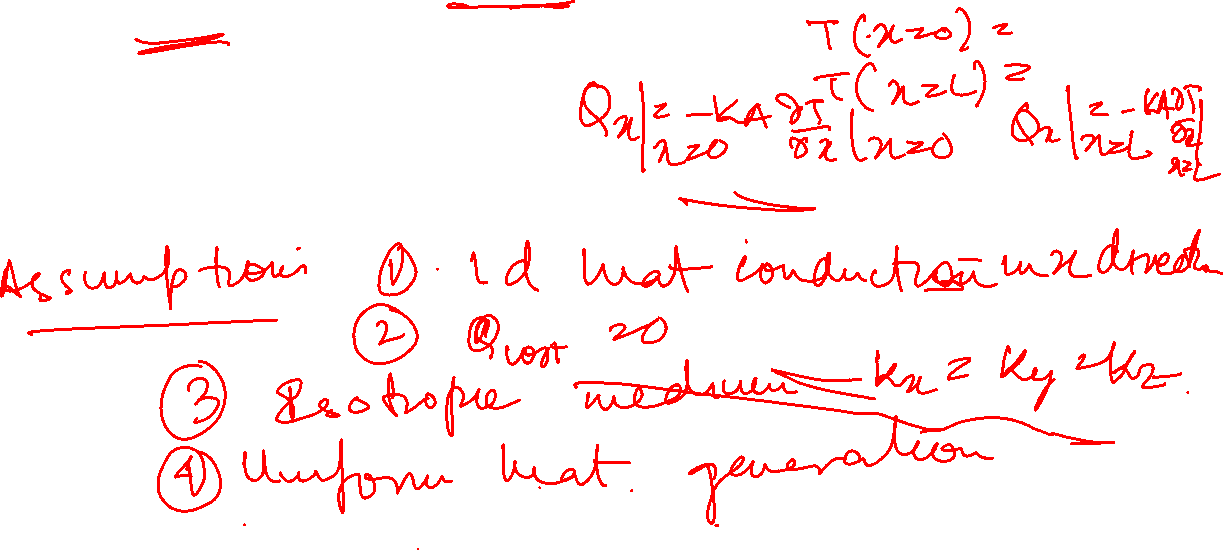 T(x=0) =
T(x=L) =
Qx|x=0 = -KA ∂T/∂x |x=0 Qx|x=L = -KA ∂T/∂x |x=L
Assumptions ① 1d heat conduction in x direction
② Qlost = 0
③ Isotropic medium kx = ky = kz.
④ Uniform heat generation